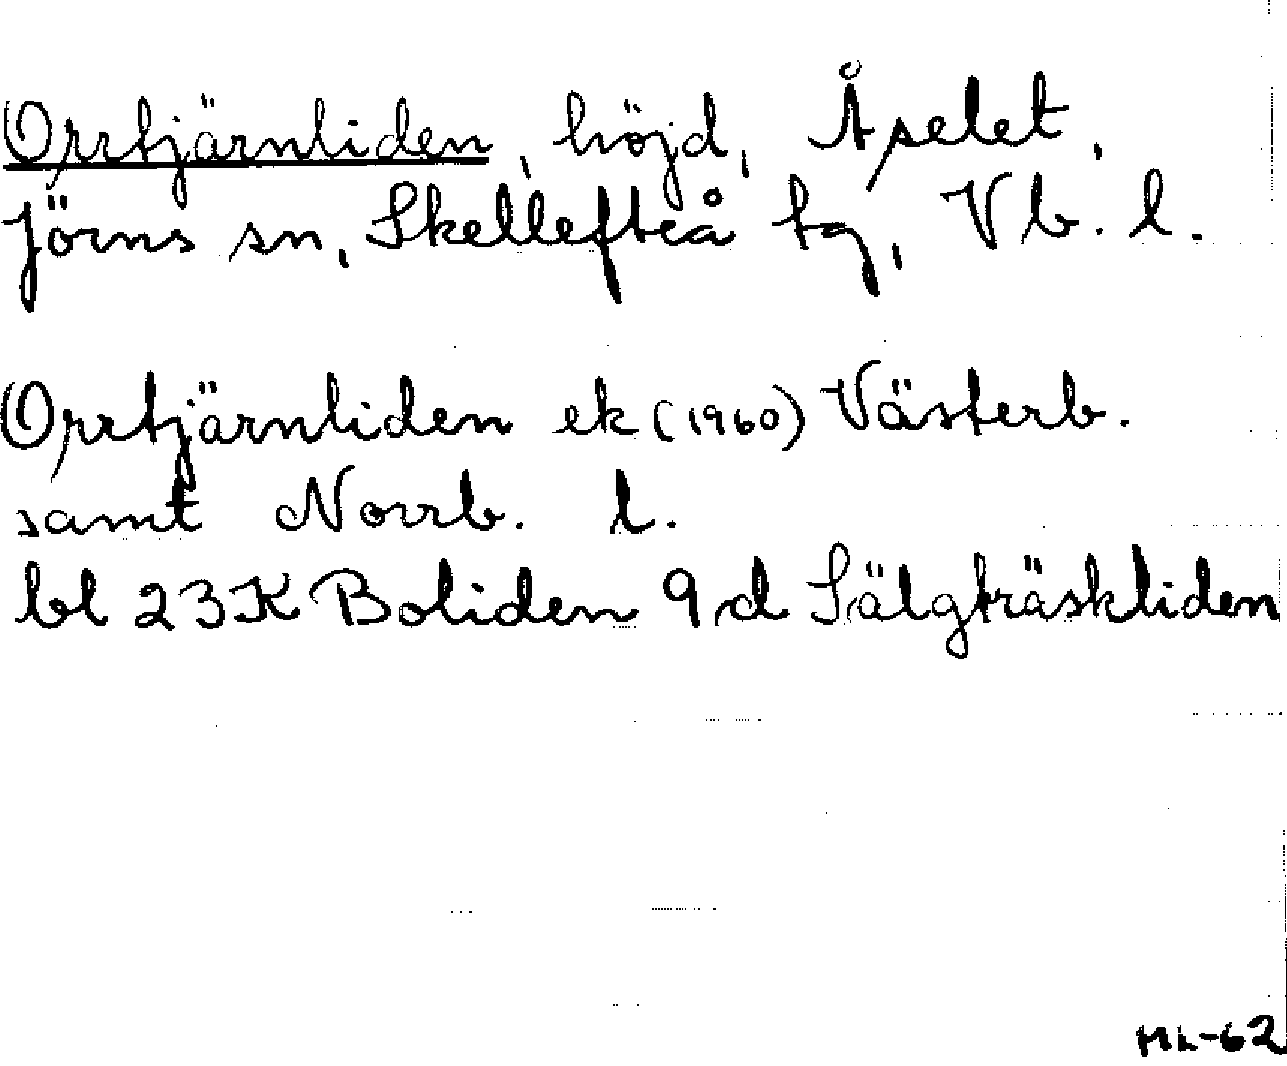 Orrtjärnliden, höjd, Åselet,
Jörns sn, Skellefteå tg, Vb. l.
Orrtjärnliden ek (1960) Västerb.
samt Norrb. l.
bl 23K Boliden 9d Sälgträskliden
ML-62